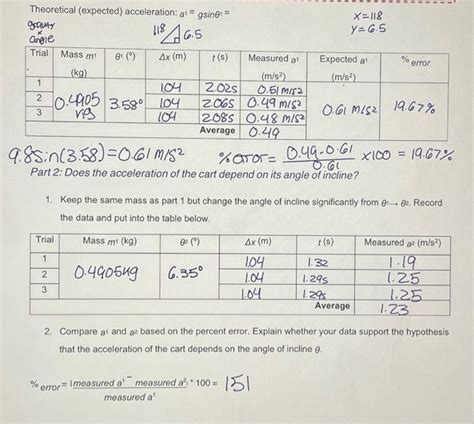 Theoretical (expected) acceleration: a1 = gsinθ1 =
gravity
x
angle
118
6.5
x=118
y=6.5
Trial Mass m1 (kg) θ1 (°) Δx (m) t (s) Measured a1 (m/s2) Expected a1 (m/s2) % error
1 1.04 2.02s 0.51 m/s2
2 0.4905 kg 3.58° 1.04 2.06s 0.49 m/s2 0.61 m/s2 19.67%
3 1.04 2.08s 0.48 m/s2
Average 0.49
9.8sin(3.58)=0.61 m/s2
% error = 0.49-0.61 / 0.61 x100 = 19.67%
Part 2: Does the acceleration of the cart depend on its angle of incline?
1. Keep the same mass as part 1 but change the angle of incline significantly from θ1→ θ2. Record
the data and put into the table below.
Trial Mass m1 (kg) θ2 (°) Δx (m) t (s) Measured a2 (m/s2)
1 1.04 1.32 1.19
2 0.4905kg 6.35° 1.04 1.29s 1.25
3 1.04 1.29s 1.25
Average 1.23
2. Compare a1 and a2 based on the percent error. Explain whether your data support the hypothesis
that the acceleration of the cart depends on the angle of incline θ.
% error = |measured a1 - measured a2| * 100 = 151
measured a1